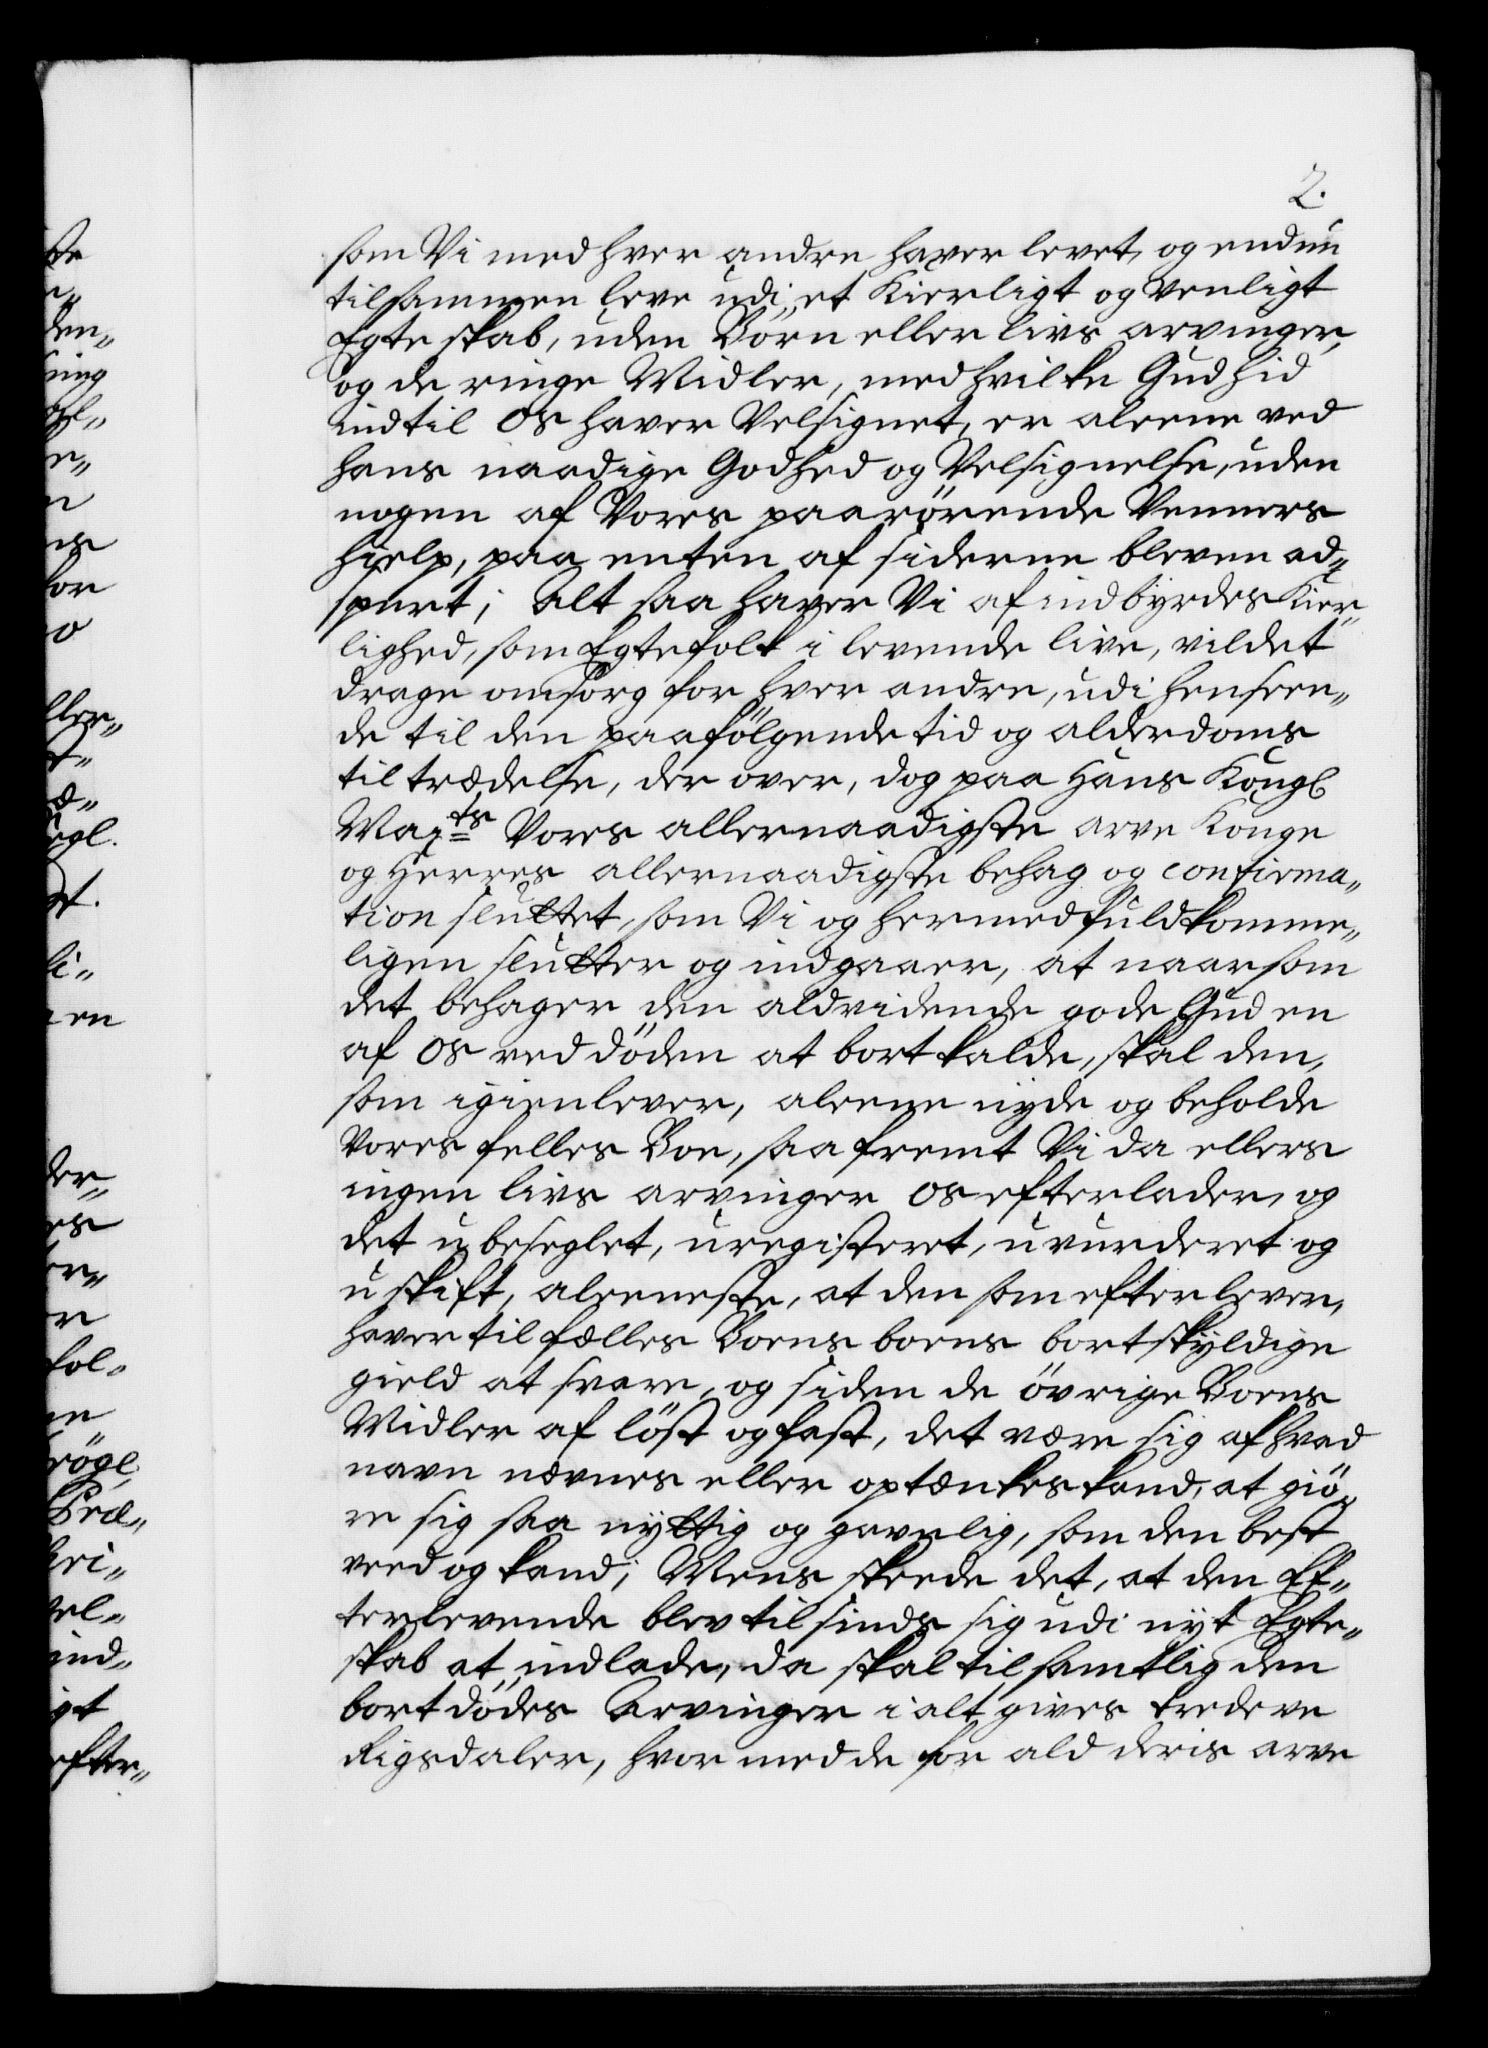 2.
som Vi med hver andre haver levet, og endnu
tilsammen leve udi et Kierligt og Venligt
Egteskab, uden Börn eller livs arvinger,
og de ringe Midler, med hvilke Gud hid
indtil Os haver Velsignet, er aleene ved
hans naadige Godhed og Velsignelse, uden
nogen af Vores paarörende Venners
hielp, paa enten af siderne bleven ad„
spurt; Alt saa haver Vi af indbyrdes Kier„
lighed, som Egtefolk i levende live, vildet
drage omsorg for hver andre, udi henseen„
de til den paafölgende tid og alderdoms
tiltrædelse, der over, dog paa Hans Kongl
Mayts Vores allernaadigste arve Konge
og Herres allernaadigste behag og confirma„
tion sluttet, som Vi og hermed fuldkomme„
ligen slutter og indgaaer, at naar som
det behager den aldvidende gode Gud en
af Os ved döden at bortkalde, skal den,
som igienlever, aleene nyde og beholde
Vores felles Boe, saafremt Vi da ellers
ingen livs arvinger Os efterlader, og
det ubeseglet, uregisteret, uvurderet og
uskift, aleeneste, at den som efterlever,
haver til fælles Boens boens bortskyldige
gield at svare, og siden de övrige Boens
Midler af löst og fast, det være sig af hvad
navn nævnes eller optænkes kand, at giö„
re sig saa nyttig og gavnlig, som den best
veed og kand; Mens skeede det, at den Ef„
terlevende blev til sinds sig udi nyt Egte„
skab at indlade, da skal til samtlig den
bortdödes Arvinger i alt gives tredeve
Rigsdaler, hvor med de for ald deris arve